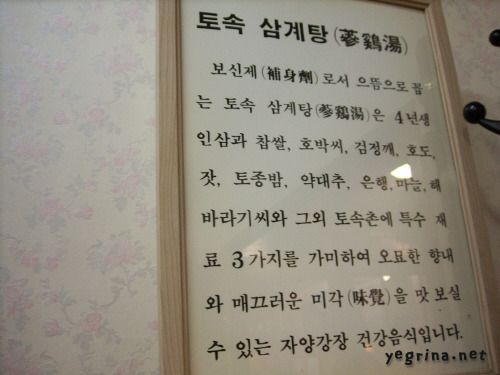 토속 삼계탕(蔘鷄湯)
보신제(補身劑)로서 으뜸으로 꼽
는 토속 삼계탕(蔘鷄湯)은 4년생
인삼과 찹쌀, 호박씨, 검정깨, 호도,
잣, 토종밤, 약대추, 은행, 마늘, 해
바라기씨와 그외 토속촌에 특수 재
료 3가지를 가미하여 오묘한 향내
와 매끄러운 미각(味覺)을 맛 보실
수 있는 자양강장 건강음식입니다.
yegrina.net